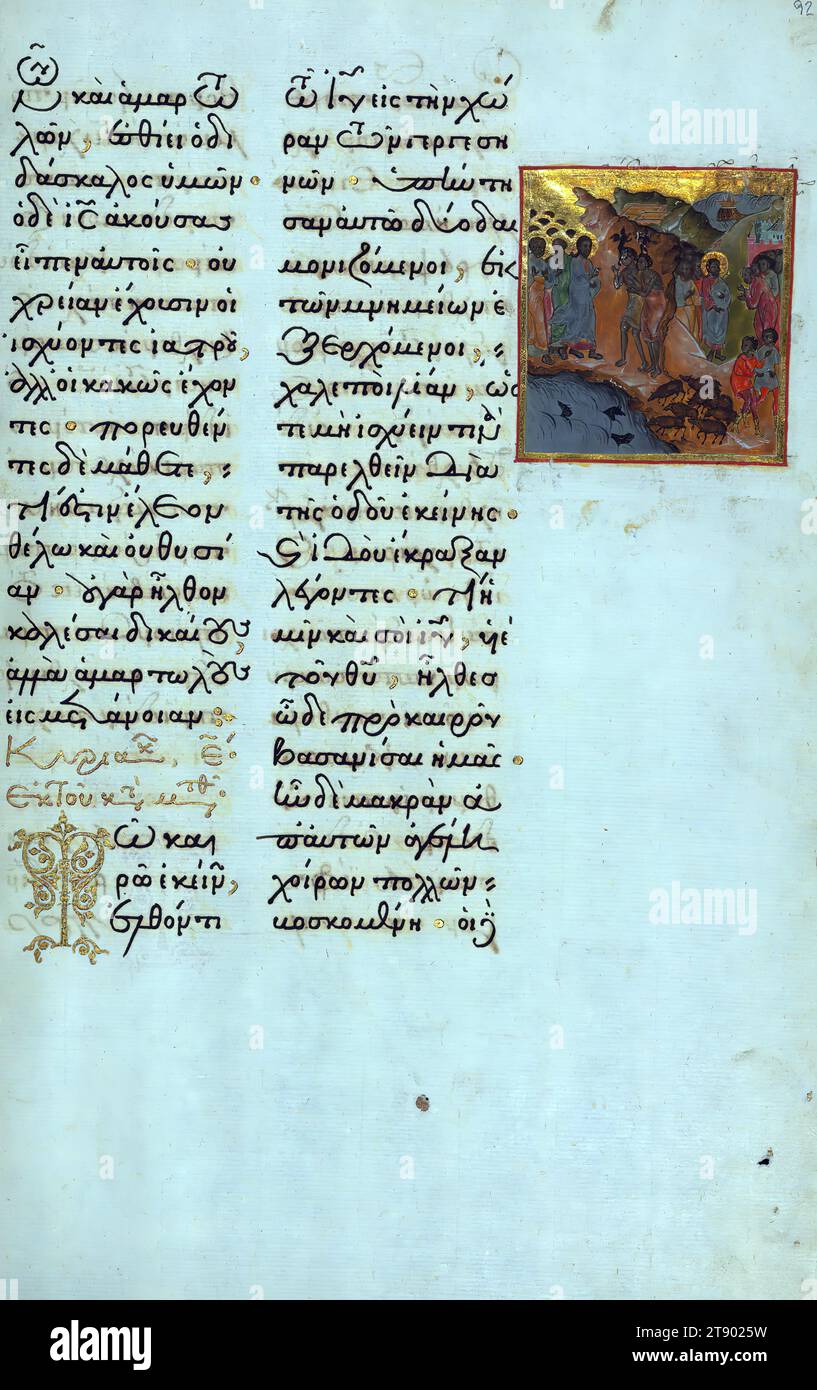 92
ῶν
καὶ ἁμαρτω
λῶν, ἐσθίει ὁ δι
δάσκαλος ὑμῶν·
ὁ δὲ ἰς ἀκούσας
εἶπεν αὐτοῖς· οὐ
χρείαν ἔχουσιν οἱ
ἰσχύοντες ἰατροῦ,
ἀλλ' οἱ κακῶς ἔχον
τες· πορευθέν
τες δὲ μάθετε,
τί ἐστιν ἔλεον
θέλω καὶ οὐ θυσί
αν· οὐ γὰρ ἦλθον
καλέσαι δικαίους,
ἀλλὰ ἁμαρτωλοὺς
εἰς μετάνοιαν:
Κυριακ ε·
ἐκ τοῦ κτ μτθ·
Τῶ και
ρῶ ἐκείν,
ἐλθόντι
τῶ ιυ εἰς τὴν χώ
ραν τῶν γεργεση
νῶν· ὑπήντη
σαν αὐτῶ δύο δαι
μονιζόμενοι, ἐκ
τῶν μνημείων ἐ
ξερχόμενοι,
χαλεποὶ λίαν, ὡς
τε μὴ ἰσχύειν τινὰ
παρελθεῖν διὰ
τῆς ὁδοῦ ἐκείνης·
καὶ ἰδοὺ ἔκραξαν
λέγοντες· τί ἡ
μῖν καὶ σοὶ ιυ, υἱὲ
τοῦ θυ, ἦλθες
ὧδε πρὸ καιροῦ
βασανίσαι ἡμᾶς·
ἦν δὲ μακρὰν ἀ
π' αὐτῶν ἀγέλη
χοίρων πολλῶν
βοσκομένη· οἱ
alamy
Image ID: 2T9025W
www.alamy.com